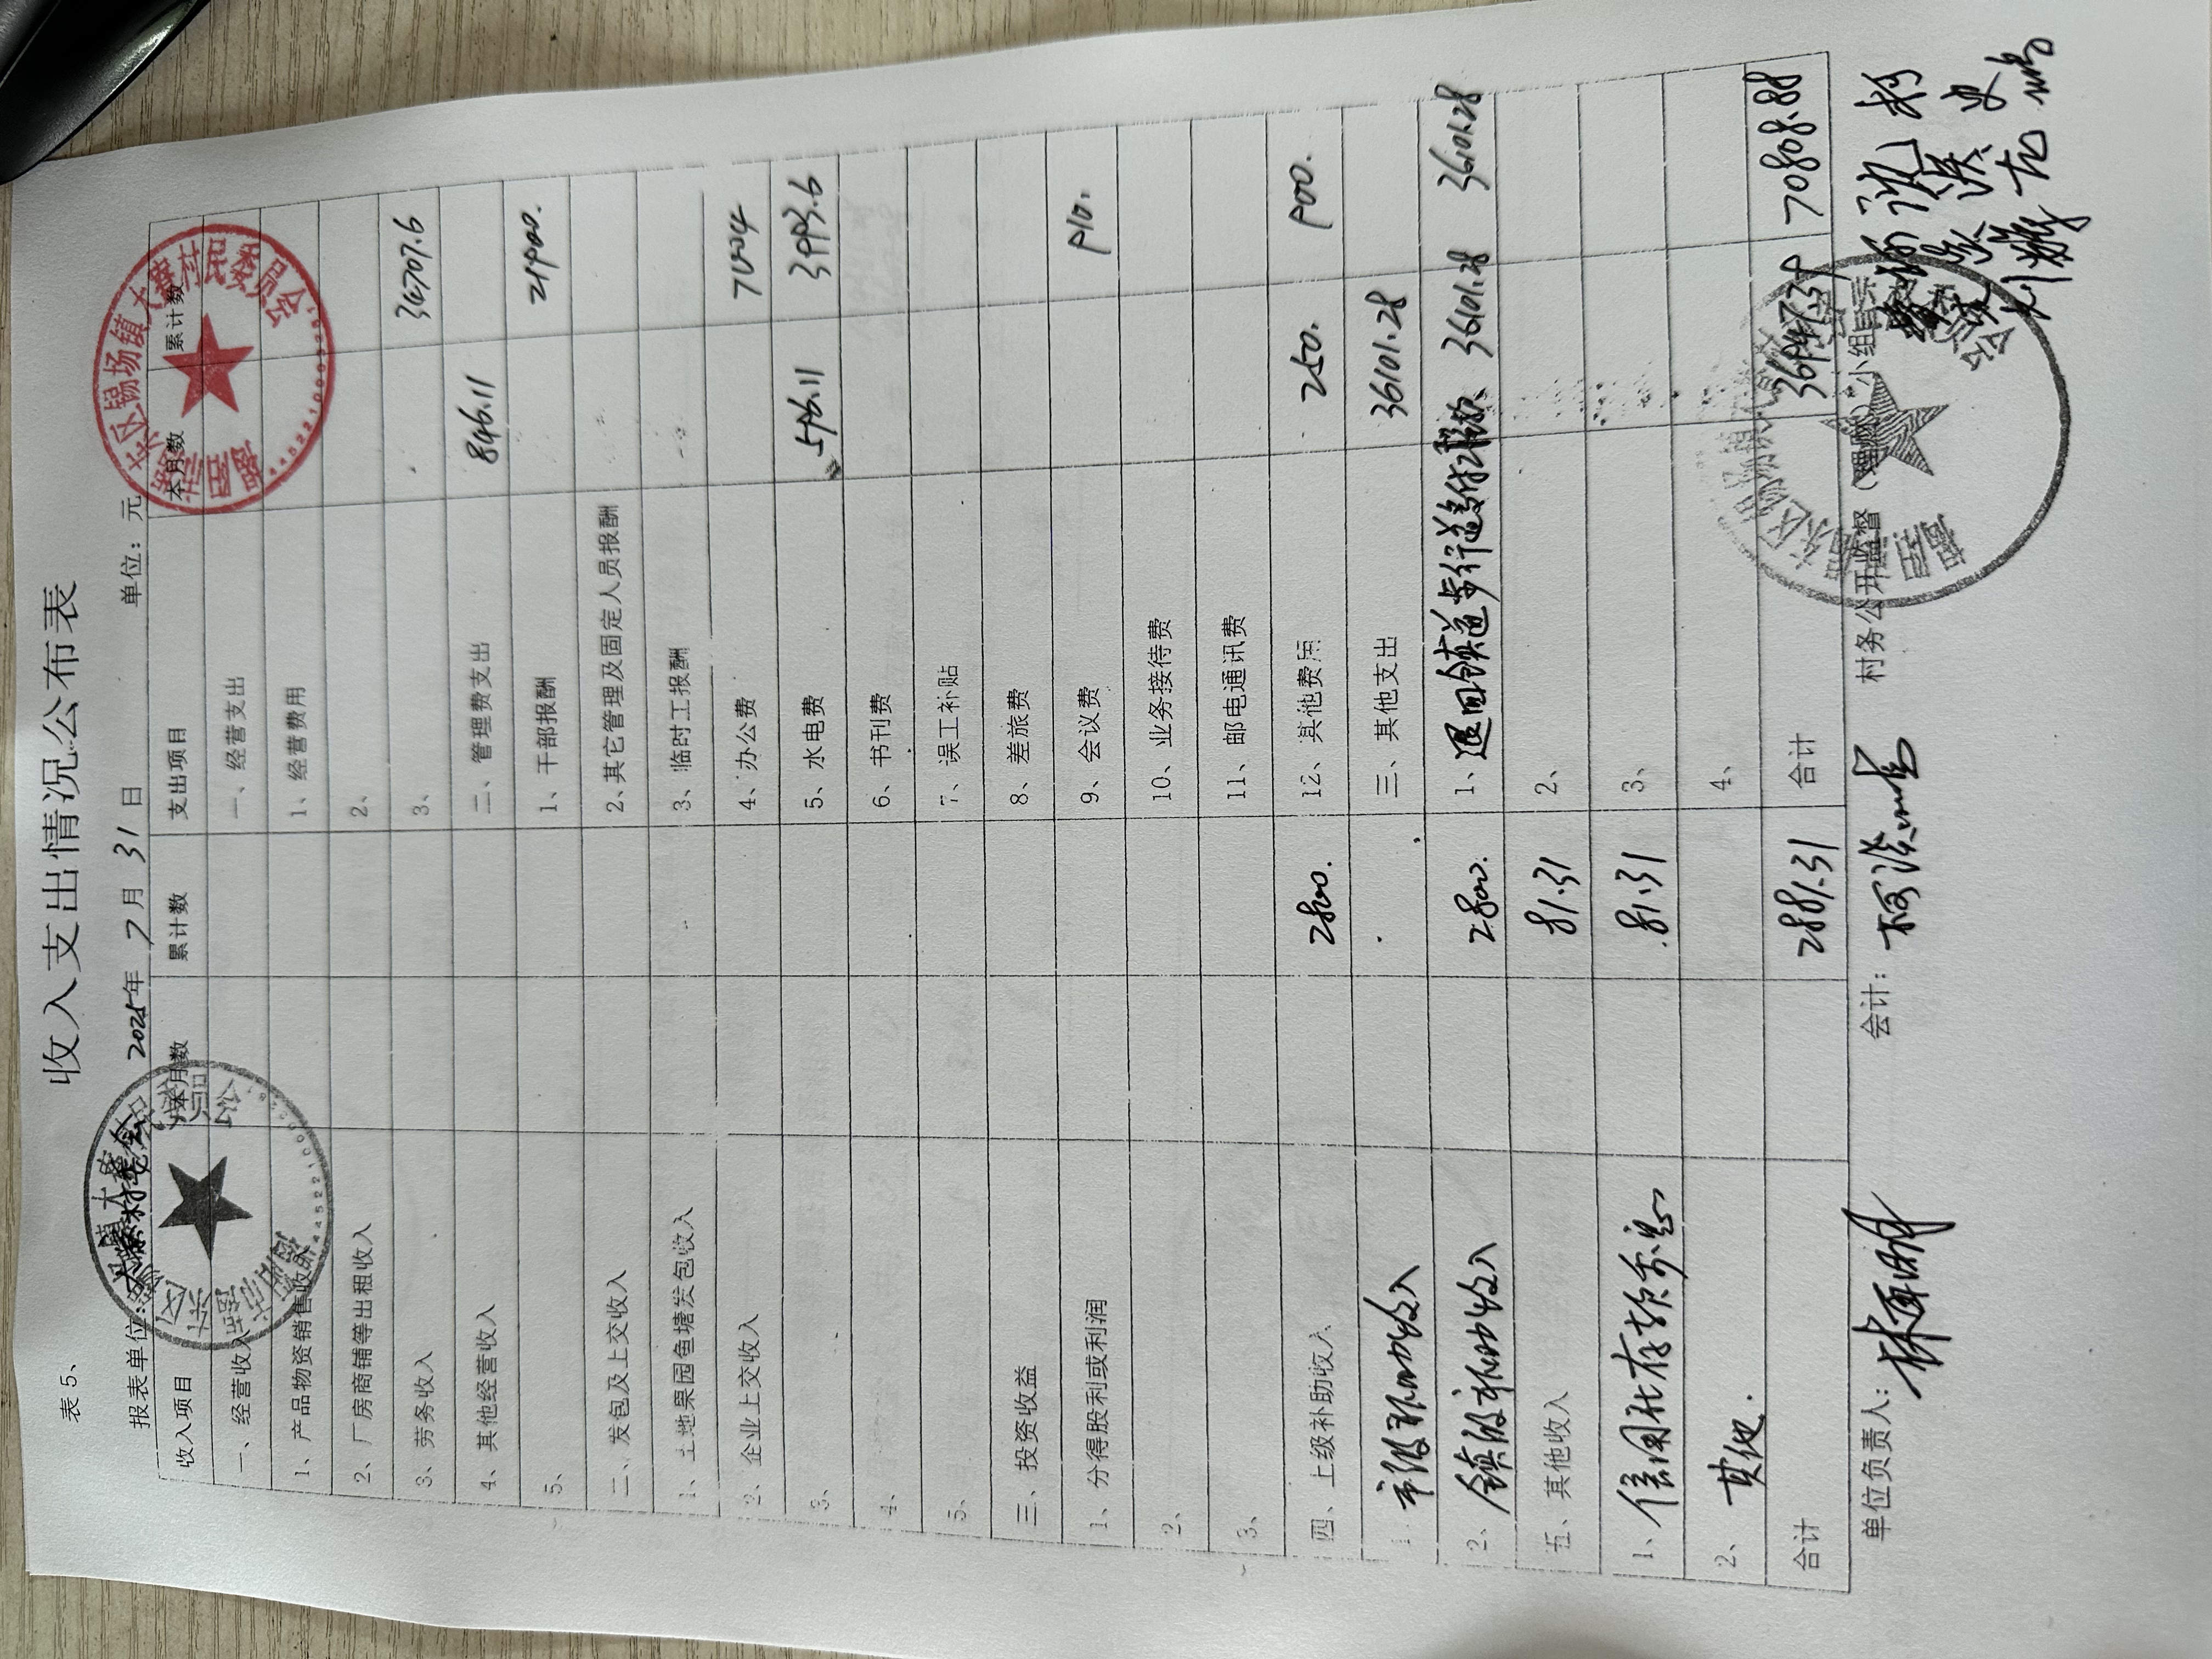 收入支出情况公布表
表5、
报表单位：大寨村委会 2025年 7月 31日 单位：元
收入项目 本月数 累计数 支出项目 本月数 累计数
一、经营收入 一、经营支出
1、产品物资销售收入 1、经营费用
2、厂房商铺等出租收入 2、
3、劳务收入 3、 34707.6
4、其他经营收入 二、管理费支出 846.11
5、 1、干部报酬 21900.
二、发包及上交收入 2、其它管理及固定人员报酬
1、土地果园鱼塘发包收入 3、临时工报酬
2、企业上交收入 4、办公费 7004
3、 5、水电费 596.11 3993.6
4、 6、书刊费
5、 7、误工补贴
三、投资收益 8、差旅费
1、分得股利或利润 9、会议费 910.
2、 10、业务接待费
3、 11、邮电通讯费
四、上级补助收入 2800. 12、其他费用 250. 900.
1、市级补助收入 三、其他支出 36101.28
2、镇级补助收入 2800. 1、退回镇道步行道 36101.28 36101.28
五、其他收入 81.31 2、
1、信用社存款利息 81.31 3、
2、其他. 4、
合计 2881.31 合计 36947.39 70808.88
单位负责人： 会计： 村务公开监督（理财）小组成员
锡场镇大寨村民委员会